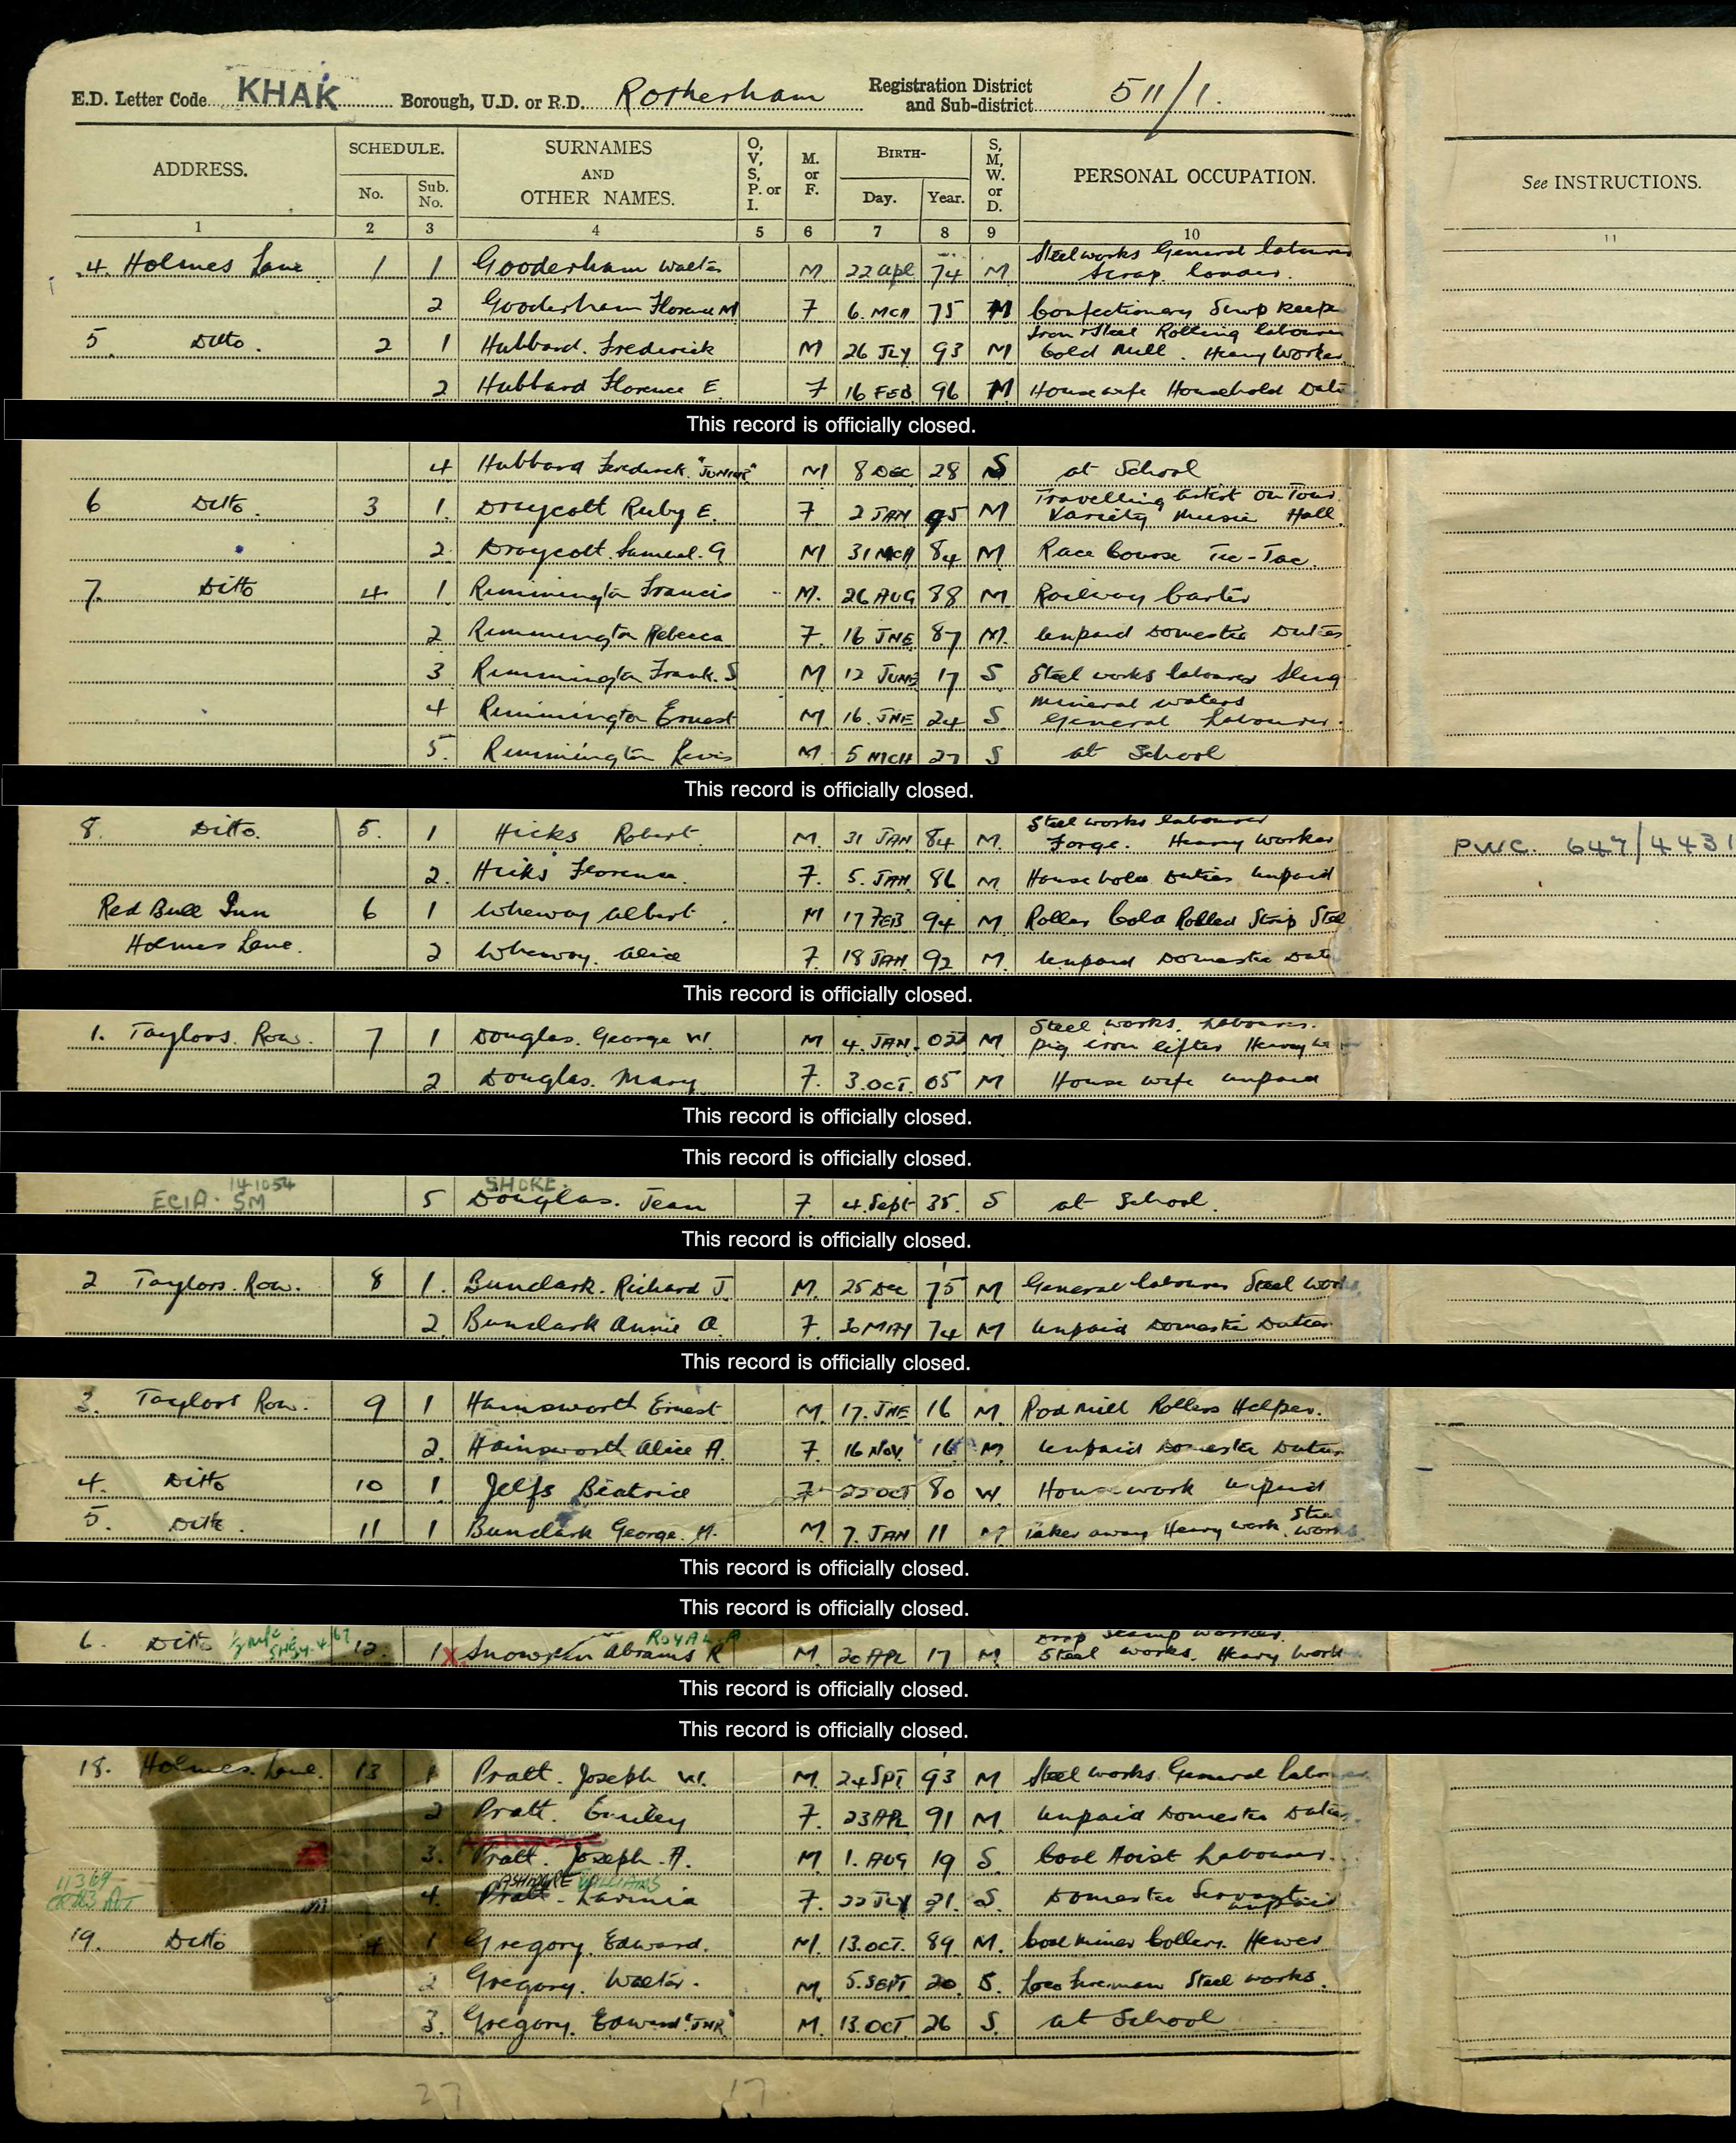 E.D. Letter Code KHAK Borough, U.D. or R.D. Rotherham Registration District and Sub-district 511/1.
ADDRESS. SCHEDULE. No. Sub. No. SURNAMES AND OTHER NAMES. O, V, S, P. or I. M. or F. BIRTH- Day. Year. S, M, W. or D. PERSONAL OCCUPATION. See INSTRUCTIONS.
1 2 3 4 5 6 7 8 9 10 11
4. Holmes Lane 1 1 Gooderham Walter M 22 Apl 74 M Steelworks General labourer Scrap loader.
2 Gooderham Florence M F 6. MCH 75 M Confectionery Shop keeper
5. Ditto. 2 1 Hubbard. Frederick M 26 JLY 93 M Iron & Steel Rolling labourer Cold Mill. Heavy Worker
2 Hubbard Florence E. F 16 FEB 96 M Housewife Household Duti
This record is officially closed.
4 Hubbard Frederick. "JUNIOR" M 8 DEC 28 S at School
6 Ditto. 3 1. Draycott Ruby E. F 2 JAN 95 M Travelling Artist On Tour. Variety Music Hall.
2. Draycott. Samuel. G M 31 MCH 84 M Race Course Tic-Tac.
7. Ditto 4 1 Rimmington Francis M. 26 AUG 88 M Railway Carter
2 Rimmington Rebecca F. 16 JNE 87 M. Unpaid Domestic Duties
3 Rimmington Frank. S M 12 JUNE 17 S Steel works labourer Sling
4 Rimmington Ernest M. 16. JNE 24 S Mineral waters General Labourer.
5. Rimmington Lewis M. 5 MCH 27 S at School
This record is officially closed.
8. Ditto. 5. 1 Hicks Robert. M. 31 JAN 84 M. Steel works labourer Forge. Heavy Worker PWC. 647/4431
2. Hicks Florence. F. 5. JAN 86 M House hold Duties unpaid
Red Bull Inn 6 1 Wheway Albert. M 17 FEB 94 M. Roller Cold Rolled Strip Stel
Holmes Lane. 2 Wheway. Alice F. 18 JAN 92 M. Unpaid Domestic Dut
This record is officially closed.
1. Taylors. Row. 7 1 Douglas. George W. M 4. JAN. 02 M. Steel works. Labourer. pig iron lifter Heavy w
2 Douglas. Mary F. 3. OCT. 05 M House wife unpaid
This record is officially closed.
This record is officially closed.
141054 SHORE.
ECIA. SM 5 Douglas. Jean F. 4. Sept 35. S at School.
This record is officially closed.
2 Taylors. Row. 8 1. Bunclark. Richard J. M. 25 Dec 75 M General labourer Steel works
2. Bunclark Annie A. F. 30 MAY 74 M Unpaid Domestic Duties
This record is officially closed.
3. Taylors Row. 9 1 Hainsworth Ernest M. 17. JNE 16 M. Rod Mill Rollers Helper.
2. Hainsworth Alice A. F. 16 Nov 16 M. Unpaid Domestic Duties
4. Ditto 10 1. Jelfs Beatrice F 22 OCT 80 W. House work unpaid
5. Ditto. 11 1 Bunclark George. H. M. 7. JAN 11 M Taker away Heavy work. Steel works
This record is officially closed.
This record is officially closed.
6. Ditto 12. 1 X Snowden Abrams R ROYAL. A M. 20 APL 17 M. Drop Stamp Worker. Steel works. Heavy Work
This record is officially closed.
This record is officially closed.
18. Holmes. Lane. 13 1 Pratt. Joseph W. M. 24 SPT 93 M. Steel works General labourer
2 Pratt. Emiley F. 23 APL 91 M. Unpaid Domestic Duties
3. Pratt. Joseph. A. M. 1. AUG 19 S. Coal Hoist Labourer.
11369 ASHMORE WILLIAMS
4. Pratt. Lavinia F. 22 JLY 21. S. Domestic Servant unpaid
19. Ditto 14 1 Gregory. Edward. M. 13. OCT. 89. M. Coal miner Colliery. Hewer
2 Gregory. Walter. M. 5. SEPT 20. S. Loco fireman Steel works.
3. Gregory. Edward. "JNR" M. 13. OCT. 26 S. at School
27 17